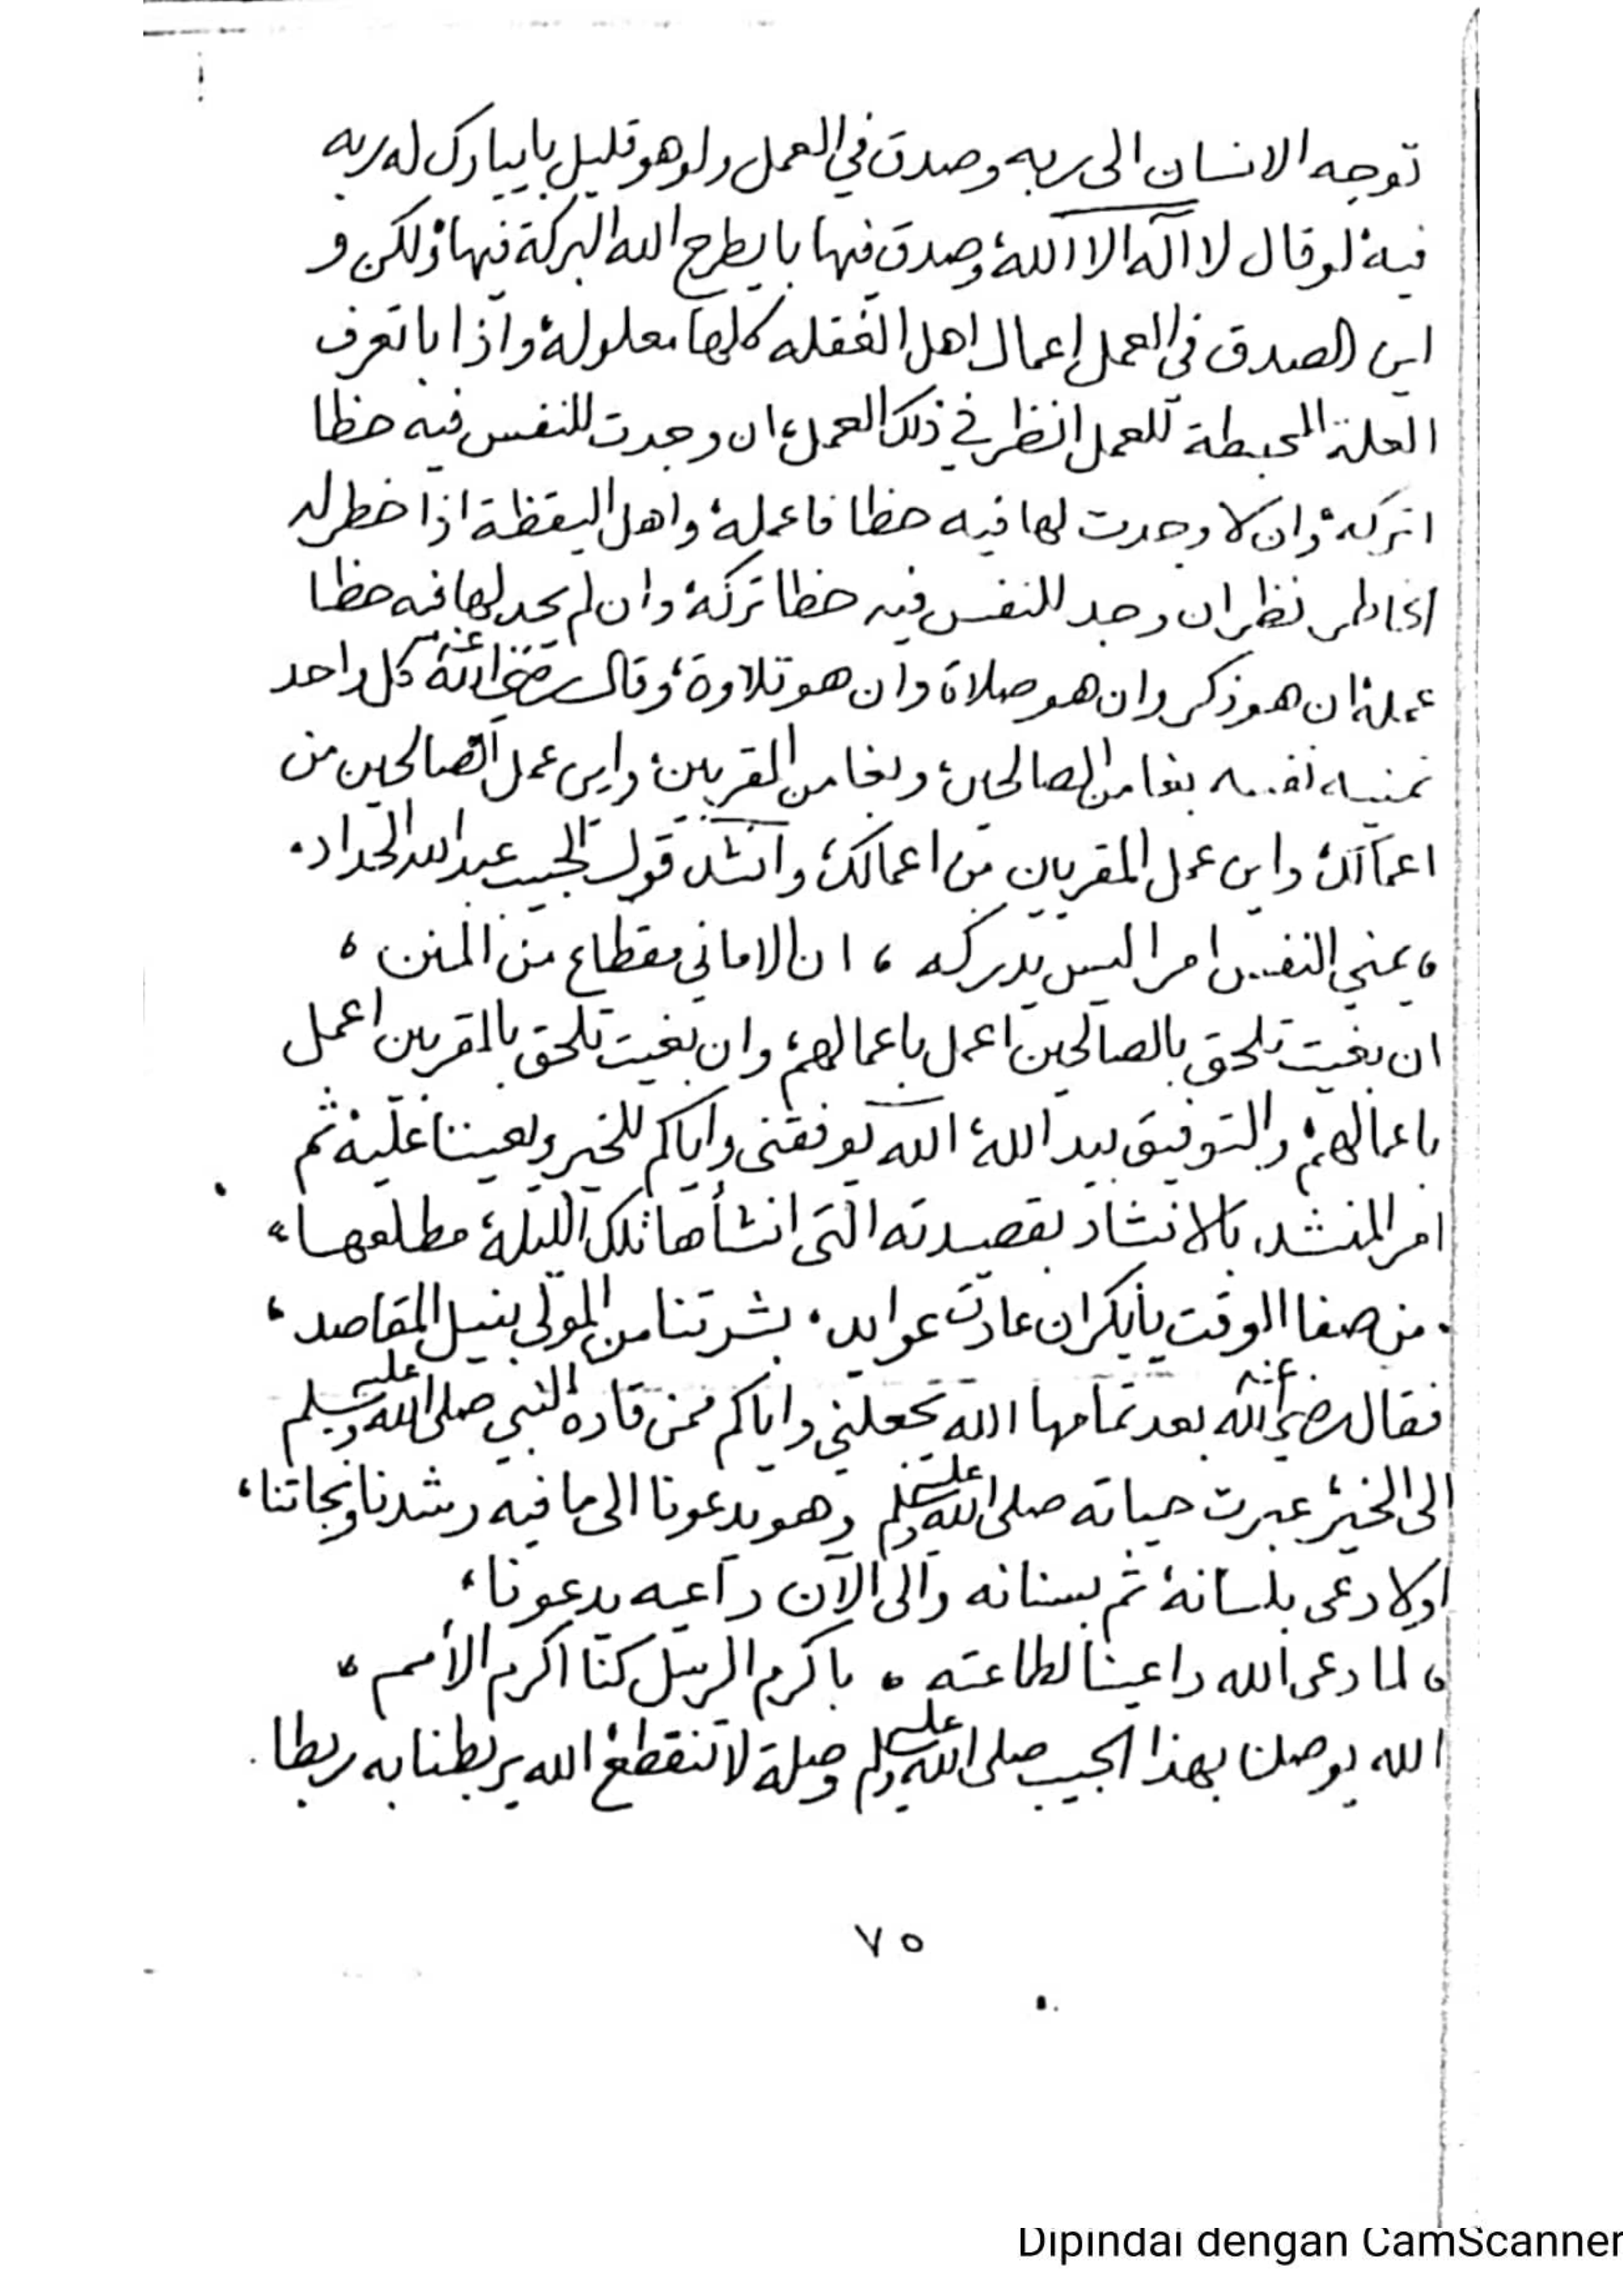 توجه الانسان الى ربه وصدق في العمل ولو هو قليل بايبارك له ربه
فيه، لو قال لا اله الا الله، وصدق فيها بايطرح الله البركة فيها، ولكن و
اين الصدق في العمل اعمال اهل الغفله كلها معلولة، واذا با تعرف
العلة المحبطة للعمل انظر في ذلك العمل، ان وجدت للنفس فيه حظا
اتركه، وان لا وجدت لها فيه حظا فاعمله، واهل اليقظة اذا خطر له
الخاطر نظر ان وجد للنفس فيه حظا تركه، وان لم يجد لها فيه حظا
عمله، ان هو ذكر وان هو صلاة وان هو تلاوة، وقال رضي الله عنه كل واحد
تمنيه نفسه بغا من الصالحين، وبغا من المقربين، واين عمل الصالحين من
اعمالك، واين عمل المقربين من اعمالك، وانشد قول الحبيب عبد الله الحداد.
، يمني النفس امرا ليس يدركه ، ان الاماني مقطاع من المنن ،
ان بغيت تلحق بالصالحين اعمل باعمالهم، وان بغيت تلحق بالمقربين اعمل
باعمالهم، والتوفيق بيد الله، الله يوفقني واياكم للخير ويعيننا عليه، ثم
امر المنشد بالانشاد بقصيدته التي انشأها تلك الليلة، مطلعها،
. من صفا الوقت يابكران عادت عوايد . بشرتنا من المولى بنيل المقاصد ،
فقال رضي الله عنه بعد تمامها الله يجعلني واياكم ممن قاده النبي صلى الله عليه وسلم
الى الخير، عبرت حياته صلى الله عليه وسلم وهو يدعونا الى ما فيه رشدنا ونجاتنا،
اولا دعى بلسانه، ثم بسنانه والى الآن داعيه يدعونا،
، لما دعى الله داعينا لطاعته ، باكرم الرسل كنا اكرم الأمم ،
الله يوصلنا بهذا الحبيب صلى الله عليه وسلم وصلة لا تنقطع، الله يربطنا به ربطا
٧٥
Dipindai dengan CamScanner